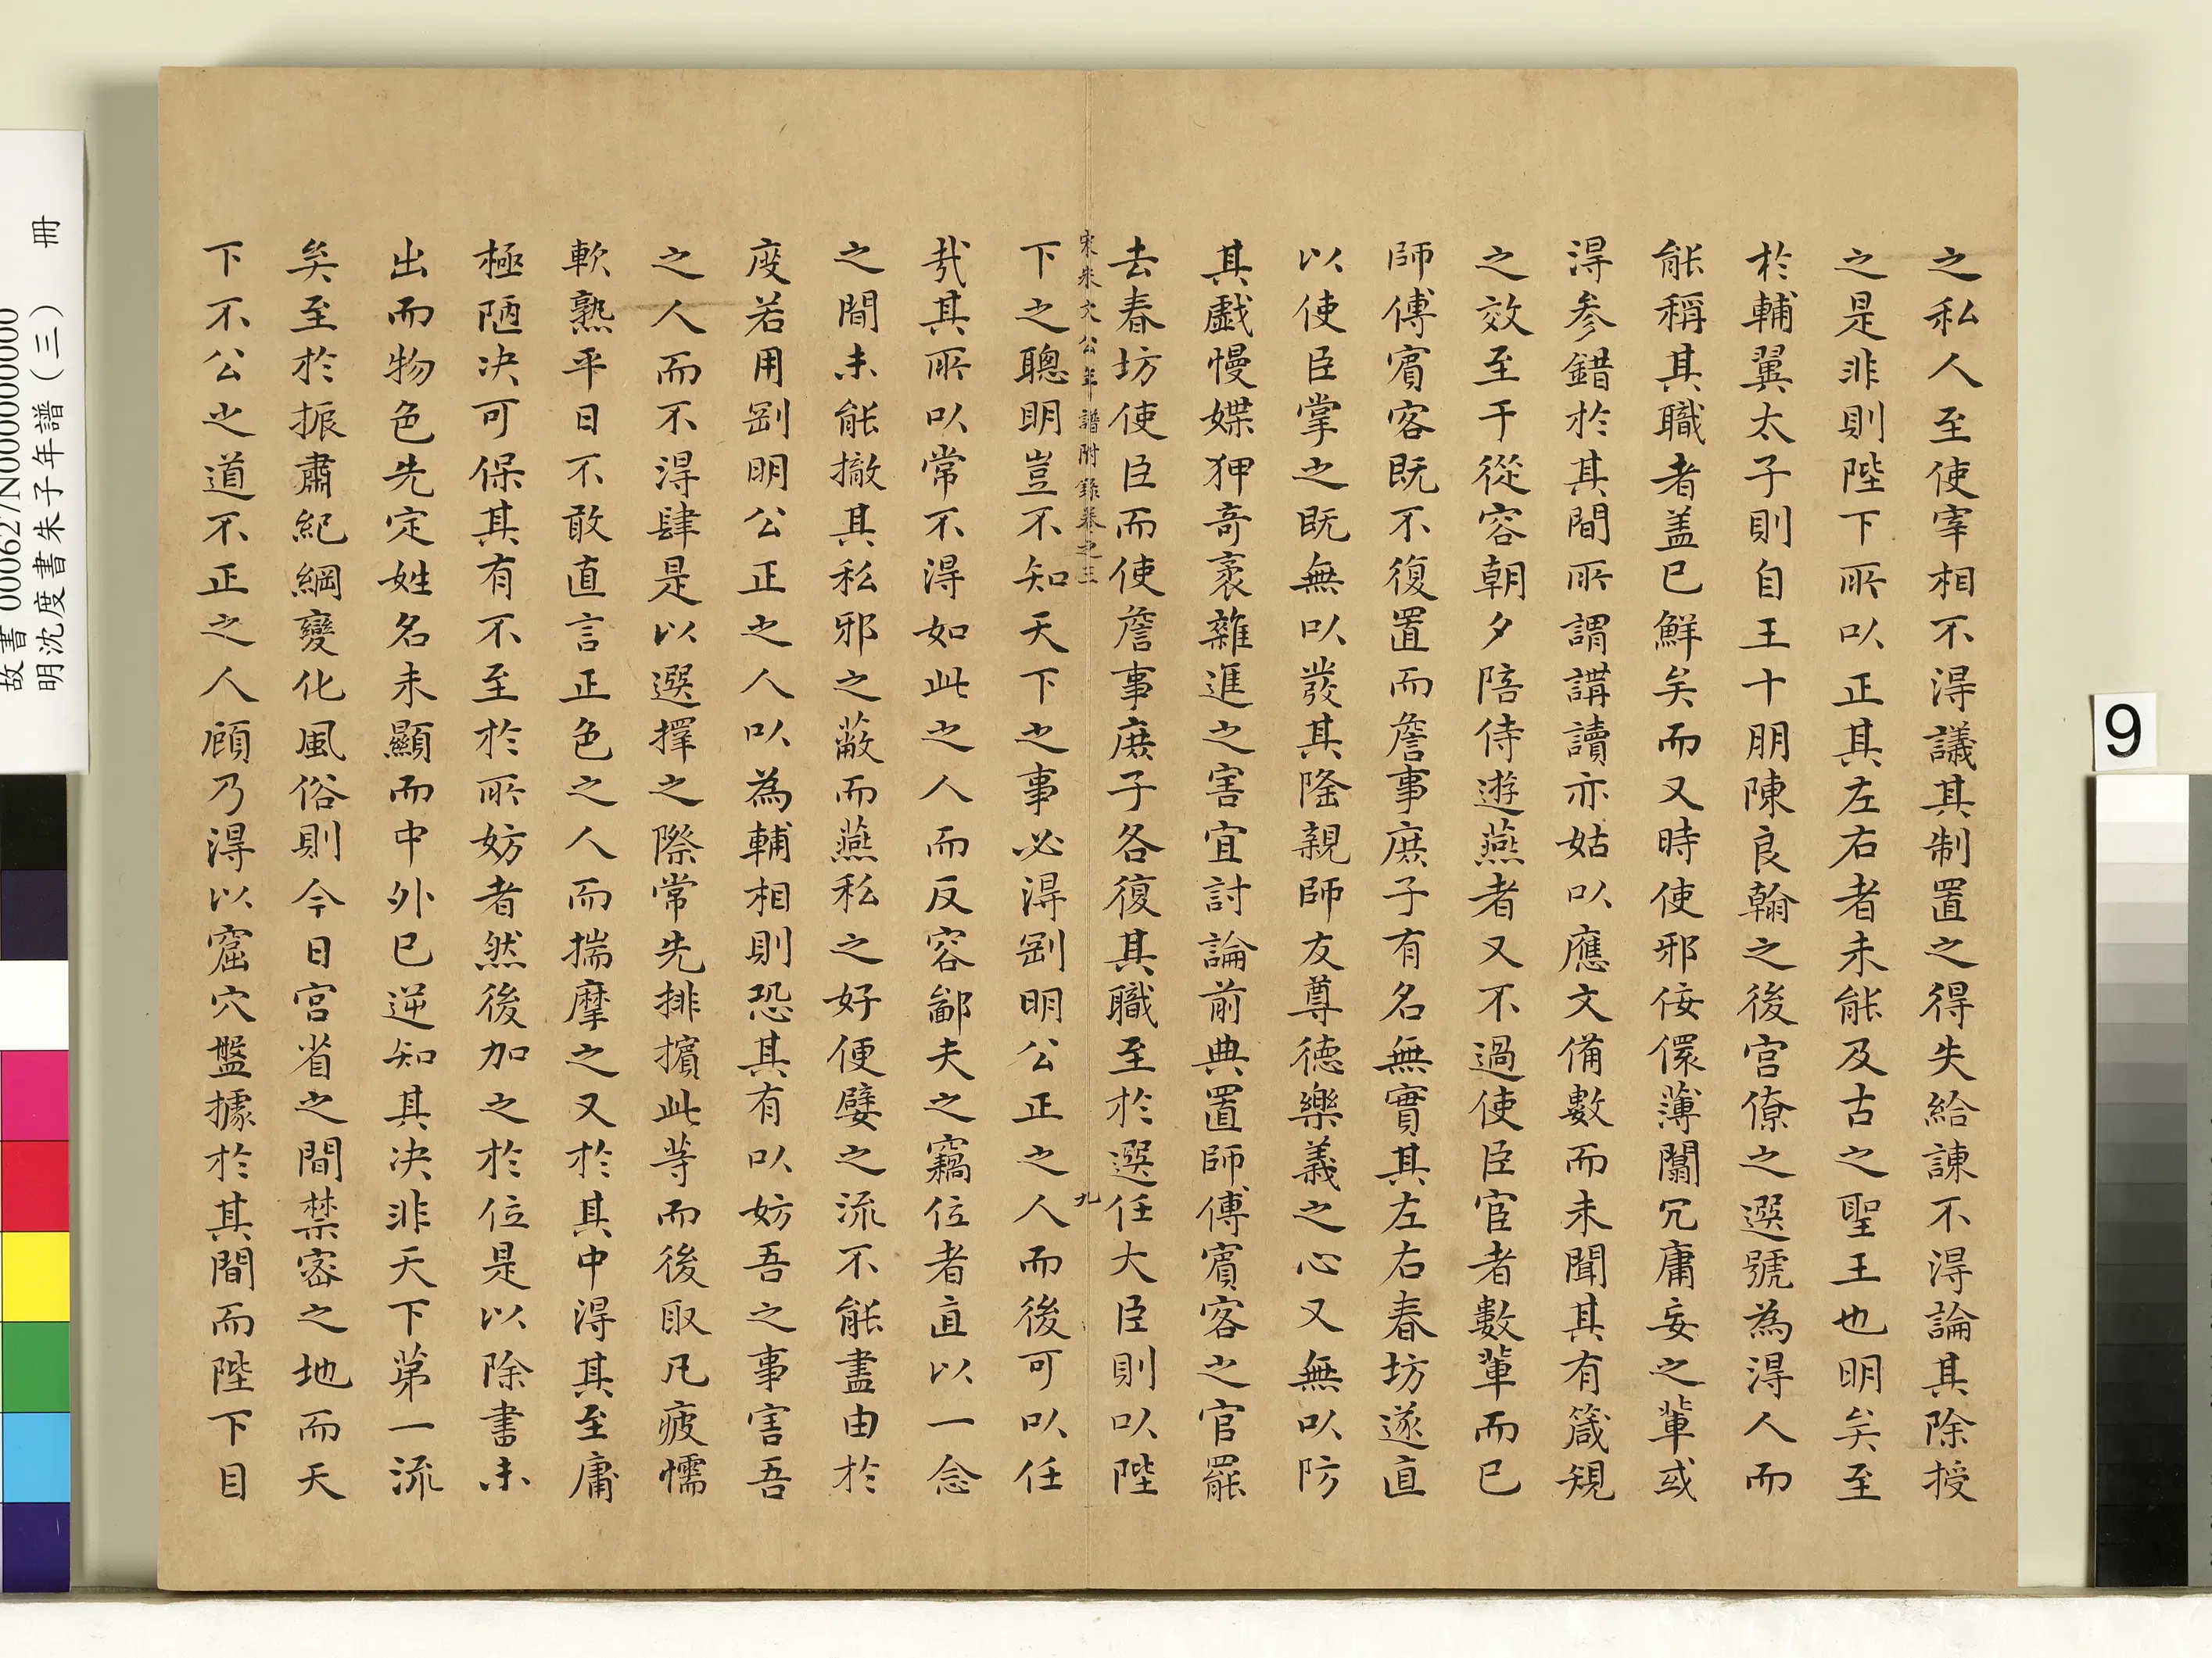 之私人至使宰相不得議其制置之得失給諫不得論其除授
之是非則陛下所以正其左右者未能及古之聖王也明矣至
於輔翼太子則自王十朋陳良翰之後宮僚之選號為得人而
能稱其職者盖已鮮矣而又時使邪佞儇薄闒冗庸妄之輩或
得参錯於其間所謂講讀亦姑以應文備數而未聞其有箴規
之效至于從容朝夕陪侍遊燕者又不過使臣宦者數輩而已
師傅賓客既不復置而詹事庶子有名無實其左右春坊遂直
以使臣掌之既無以發其隆親師友尊德樂義之心又無以防
其戲慢媟狎奇袤雜進之害宜討論前典置師傅賓客之官罷
去春坊使臣而使詹事庶子各復其職至於選任大臣則以陛
宋朱文公年譜附錄卷之三 九
下之聰明豈不知天下之事必得剛明公正之人而後可以任
哉其所以常不得如此之人而反容鄙夫之竊位者直以一念
之間未能撤其私邪之蔽而燕私之好便嬖之流不能盡由於
度若用剛明公正之人以為輔相則恐其有以妨吾之事害吾
之人而不得肆是以選擇之際常先排擯此等而後取凡疲懦
軟熟平日不敢直言正色之人而揣摩之又於其中得其至庸
極陋决可保其有不至於所妨者然後加之於位是以除書未
出而物色先定姓名未顯而中外已逆知其决非天下第一流
矣至於振肅紀綱變化風俗則今日宮省之間禁密之地而天
下不公之道不正之人顧乃得以窟穴盤據於其間而陛下目
9
故書 000627N000000000
明沈度書朱子年譜（三） 冊